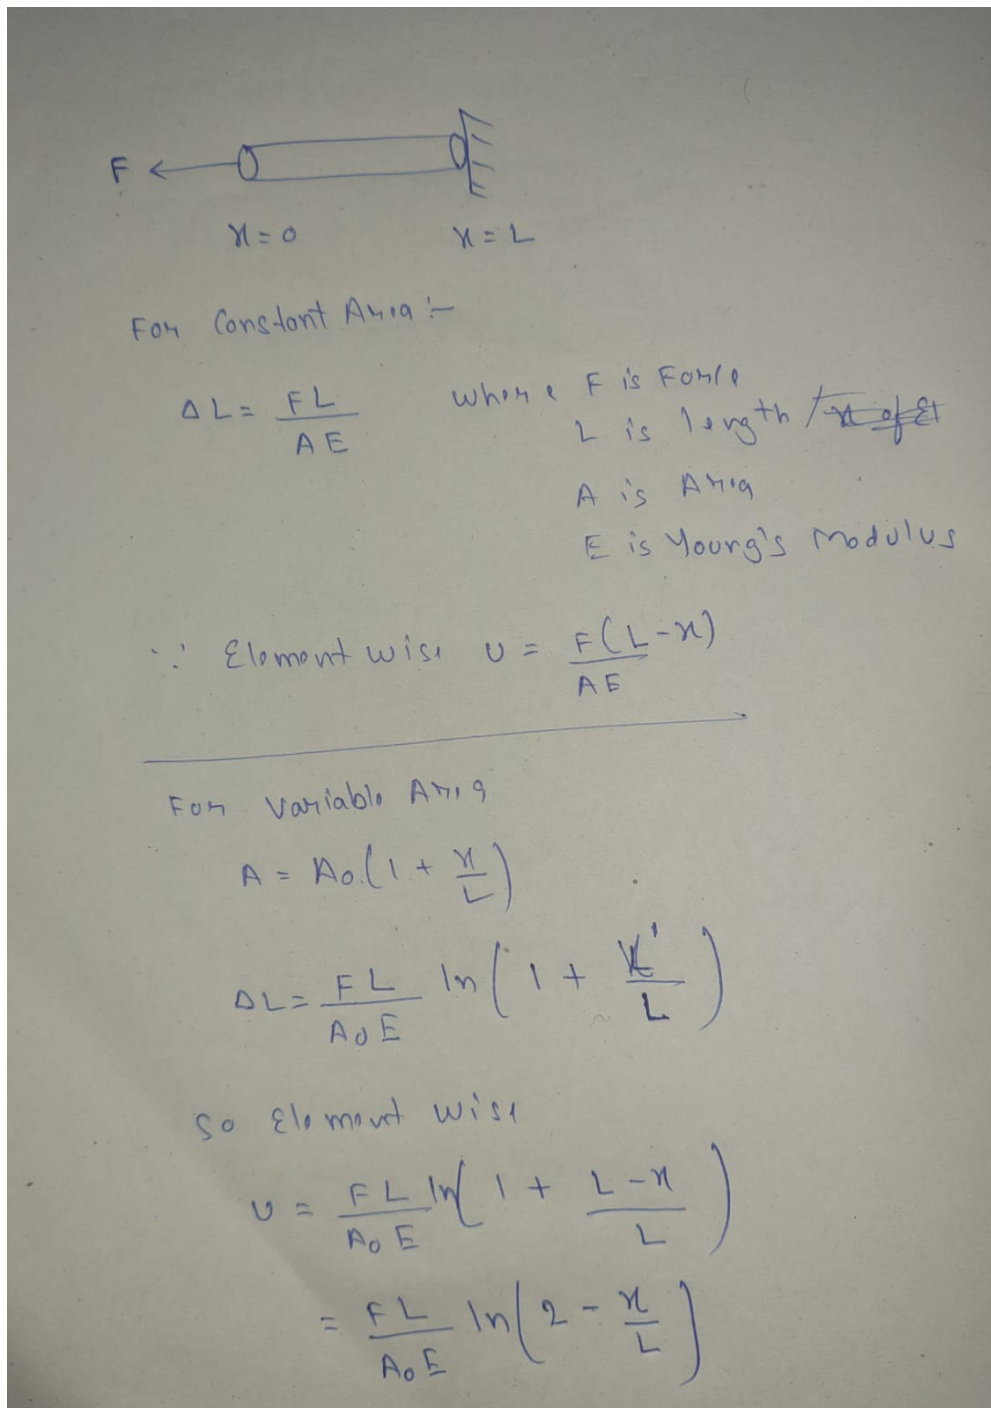 F
x = 0 x = L
For Constant Area :-
ΔL = FL / AE where F is Force
L is length
A is Area
E is Young's Modulus
∵ Element wise U = F(L-x) / AE
For variable Area
A = A₀(1 + x/L)
ΔL = FL / A₀E ln(1 + x' / L)
So Element wise
U = FL / A₀E ln(1 + L-x / L)
= FL / A₀E ln(2 - x/L)